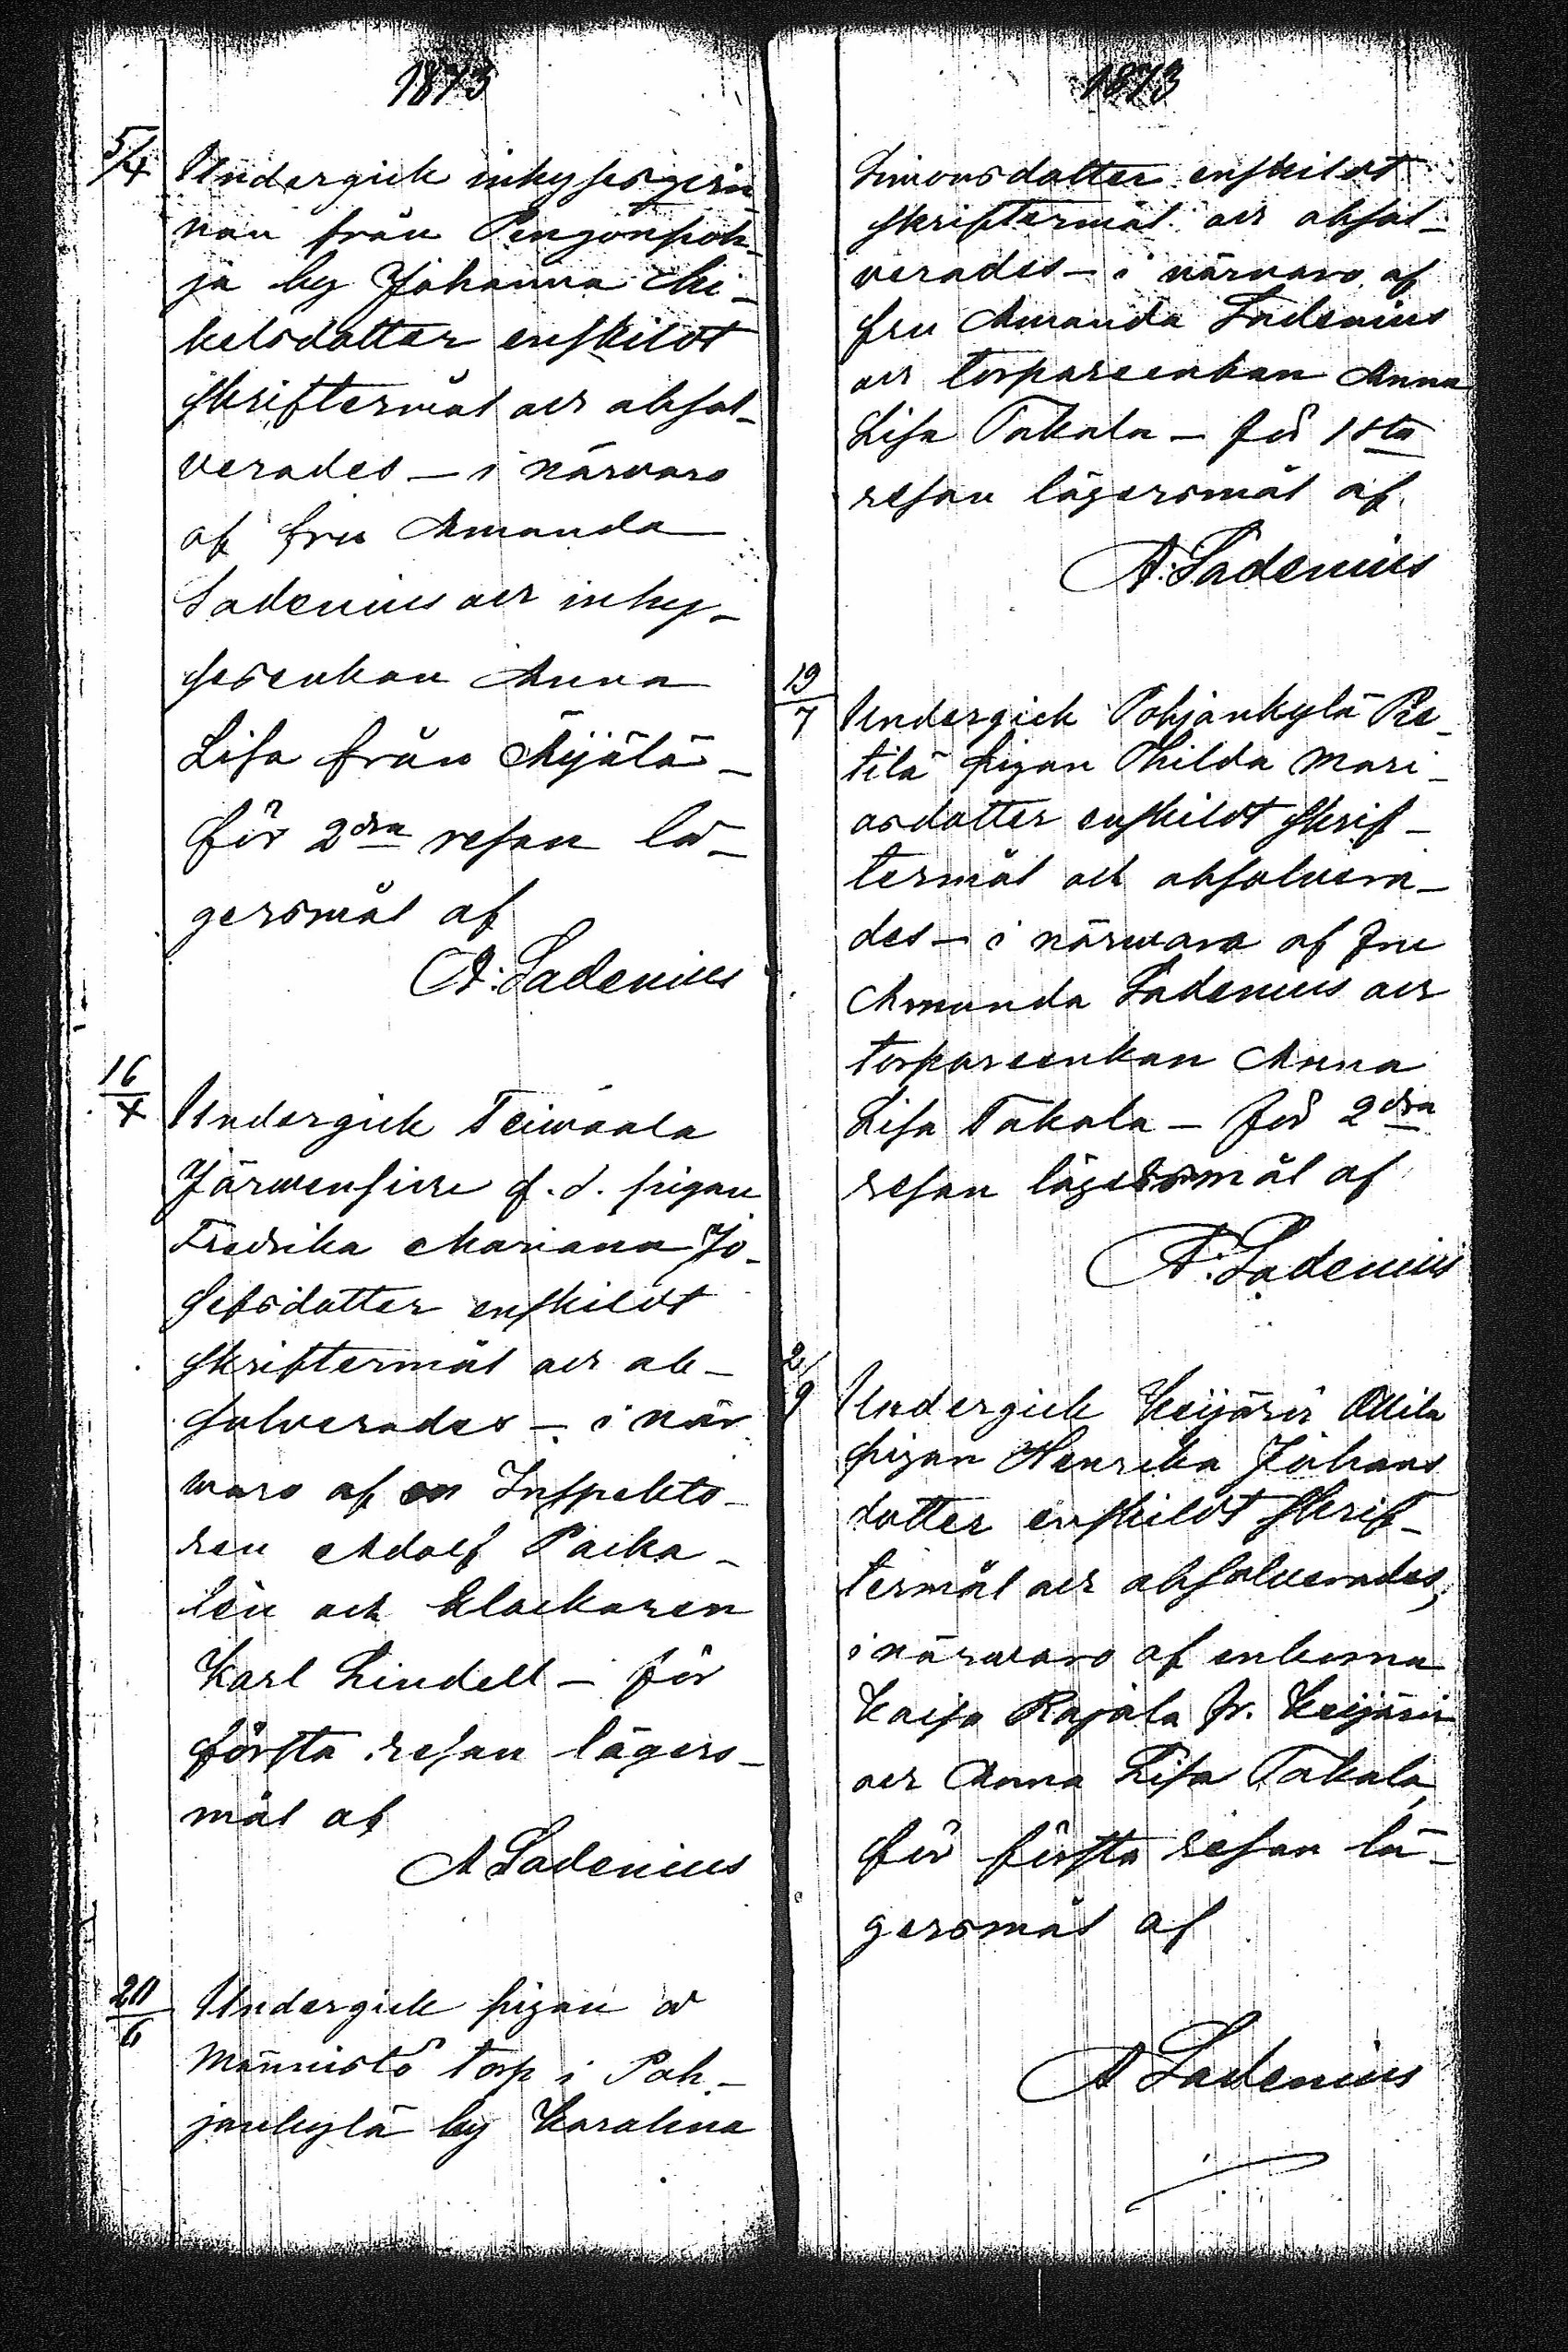 1873
5/4 Undergick inhysesgerin
nan från Penjönpoh-
ja by Johanna Mi-
kelsdotter enskildt
skriftermål och absol-
verades – i närvaro
af fru Amanda
Ladenius och inhy-
sesenkan Anna
Lisa från Äijälä –
för 2dra resan lä-
gersmål af
A. Ladenius
16/4 Undergick Teiwaala
Järwensivu f.d. pigan
Fredrika Mariana Jo-
sefsdotter enskildt
skriftermål och ab-
solverades – i när
waro af Inspekto-
ren Adolf Packa-
lén och klockaren
Karl Lindell – för
första resan lägers-
mål af
A Ladenius
20/6 Undergick pigan å
Männistö torp i Poh-
jankylä by Karolina
1873
Simonsdotter enskildt
skriftermål och absol-
verades – i närvaro af
fru Amanda Ladenius
och torpareenkan Anna
Lisa Takala – för 1sta
resan lägersmål af
A. Ladenius
19/7 Undergick Pohjankylä Pie-
tilä pigan Hilda Mari-
asdotter enskildt skrif-
termål och absolvera-
des – i närwaro af fru
Amanda Ladenius och
torpareenkan Anna
Lisa Takala – för 2dra
resan lägersmål af
A. Ladenius
2/9 Undergick Keijärvi Ollila
pigan Henrika Johans
dotter enskildt skrif-
termål och absolverades,
i närwaro af enkorna
Kaisa Rajala fr. Keijärvi
och Anna Lisa Takala,
för första resan lä-
gersmål af
A Ladenius